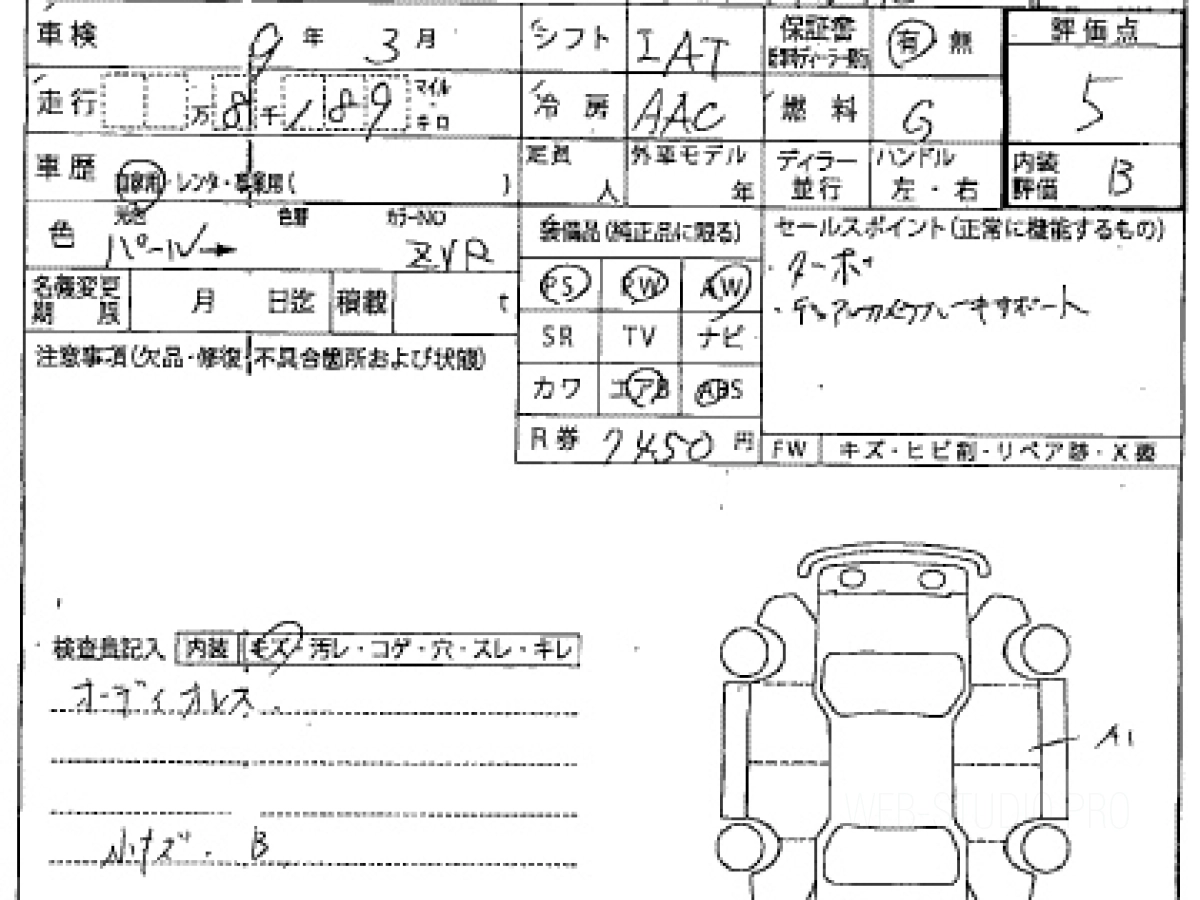 車検 9年 3月 シフト IAT 保証書 有 無 評価点
走行 万8千189 マイル キロ 冷房 AAC 燃料 G 5
車歴 自家用・レンタ・事業用( ) 定員 人 外車モデル 年 ディラー 並行 ハンドル 左・右 内装評価 B
色 元色 色替 カラーNO 装備品(純正品に限る) セールスポイント(正常に機能するもの)
パール→ ZVR ・ターボ
名義変更期限 月 日迄 積載 t PS PW AW ・デュアルカメラブレーキサポート
SR TV ナビ
注意事項(欠品・修復 不具合箇所および状態)
カワ エアB ABS
R券 7450円 FW キズ・ヒビ割・リペア跡・X要
検査員記入 内装 キズ・汚レ・コゲ・穴・スレ・キレ
オーディオレス.
A1
WEB-STUDIO.PRO
小キズ. B